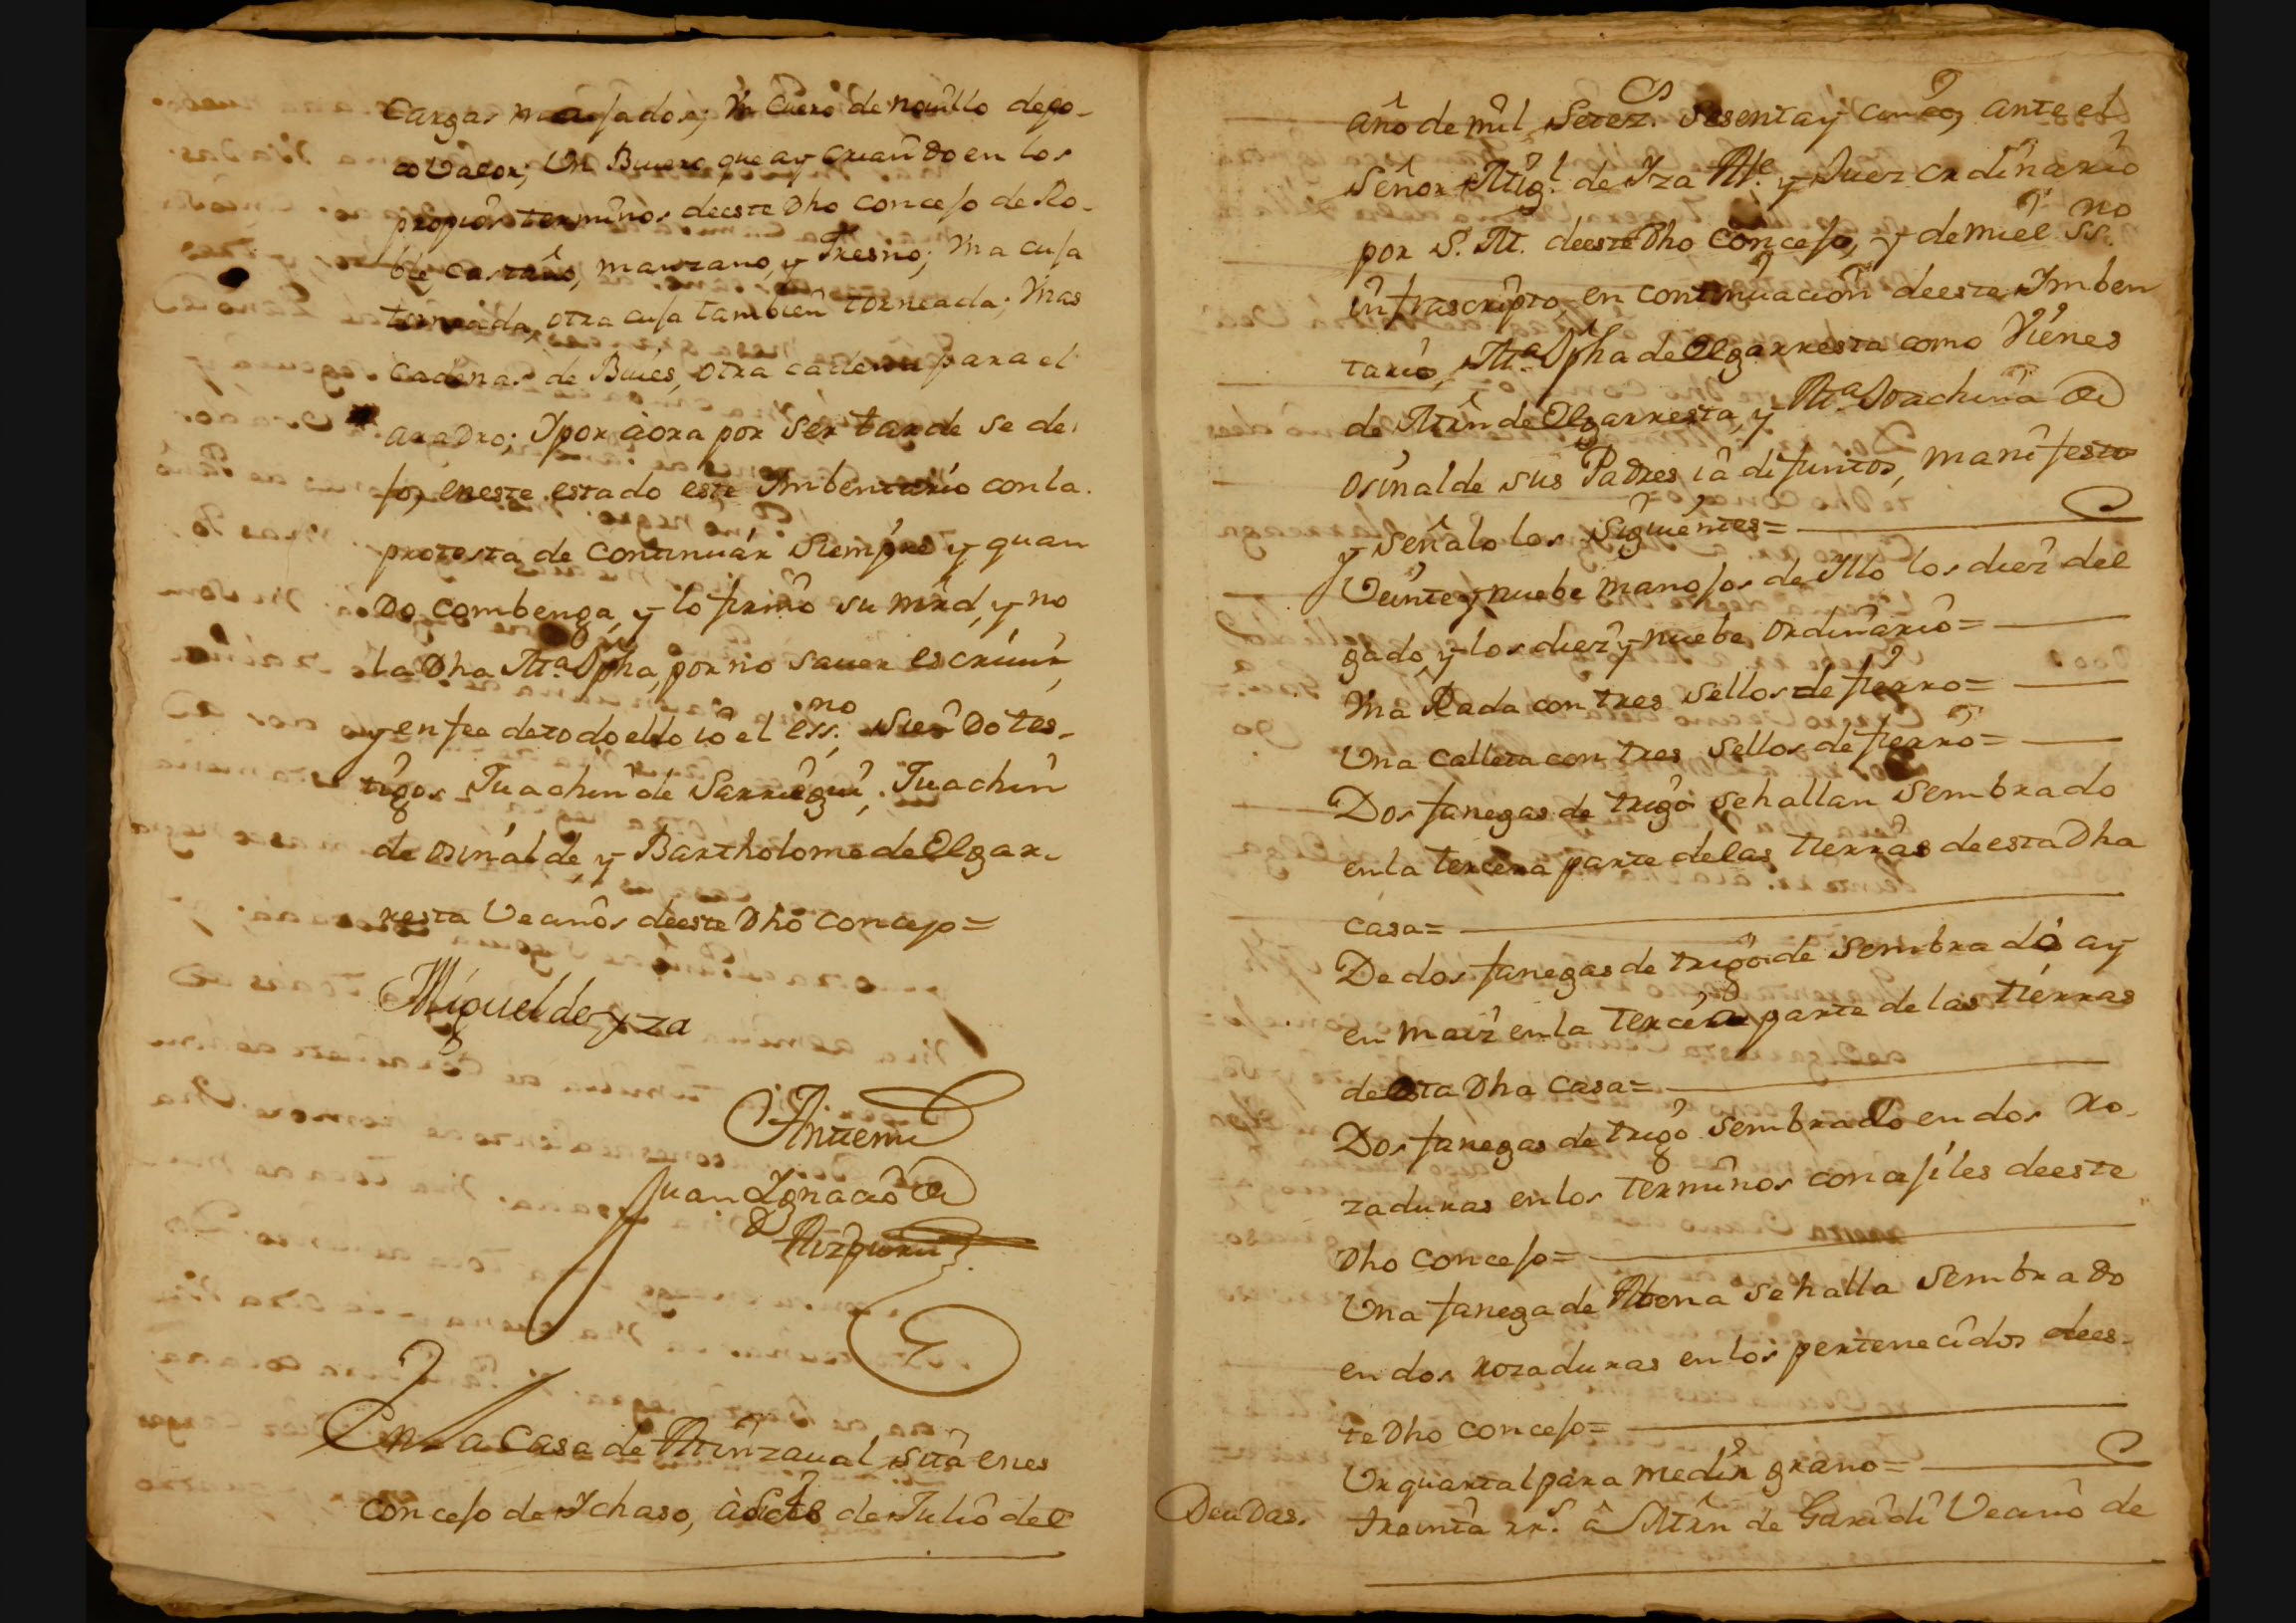 cargas masadoxa; Vn cuero de nouillo depo-
co valor; Un Buiero que ay criando en los
propios terminos deeste Dho concejo de Ro-
ble castaño, manzano, y Fresno; Vna cuja
torneada, otra cuja tambien torneada; Vnas
Cadenas de Buies, otra cadena para el
aradro; Y por aora por ser tarde se de-
jo, en este estado este Imbentario con la
protesta de continuar siempre y quan
Do combenga, y lo firmo su mrd, y no
la Dha Ma. Jpha, por no sauer escriuir,
y en fee de todo ello io el essno. siendo tes-
tigos Juachin de Sarriegui, Juachin
de osinalde, y Bartholome de Olgar-
resta Vecinos deeste Dho concejo=
Miguel de Yza
Antemi
Juan Ygnacio de
Aizpuru
En la casa de Minzaual sita enes
concejo de Ychaso, à siete de Julio del
año de mil Setez. Sesenta y cinco, ante el
Señor Migl. de Yza Alce. y Juez ordinario
por S. M. deeste Dho concejo, y de mi el ssno.
infrascripto, en continuacion deeste Imben
tario, Ma. Jpha de Olgarresta como Vienes
de Mrn de Olgarresta, y Ma. Joachina de
Osinalde sus Padres ia difuntos, manifesto
y señalo los siguientes=
Veinte y nuebe manojos de Illo los diez del
gado, y los diez y nuebe ordinario=
Vna Rada con tres sellos de fierro=
Una calleta con tres sellos de fierro=
Dos fanegas de trigo sehallan sembrado
en la tercera parte delas tierras deesta Dha
casa=
De dos fanegas de trigo de sembrado ay
en maiz en la tercera parte delas tierras
deesta Dha casa=
Dos fanegas de trigo sembrado en dos Ro-
zaduras en los terminos concejiles deeste
Dho concejo=
Una fanega de Abena sehalla sembrado
en dos rozaduras en los pertenecidos dees-
te Dho concejo=
Un quartal para medir grano=
Deudas. treinta rrs. â Mrn de Garindi Vecino de